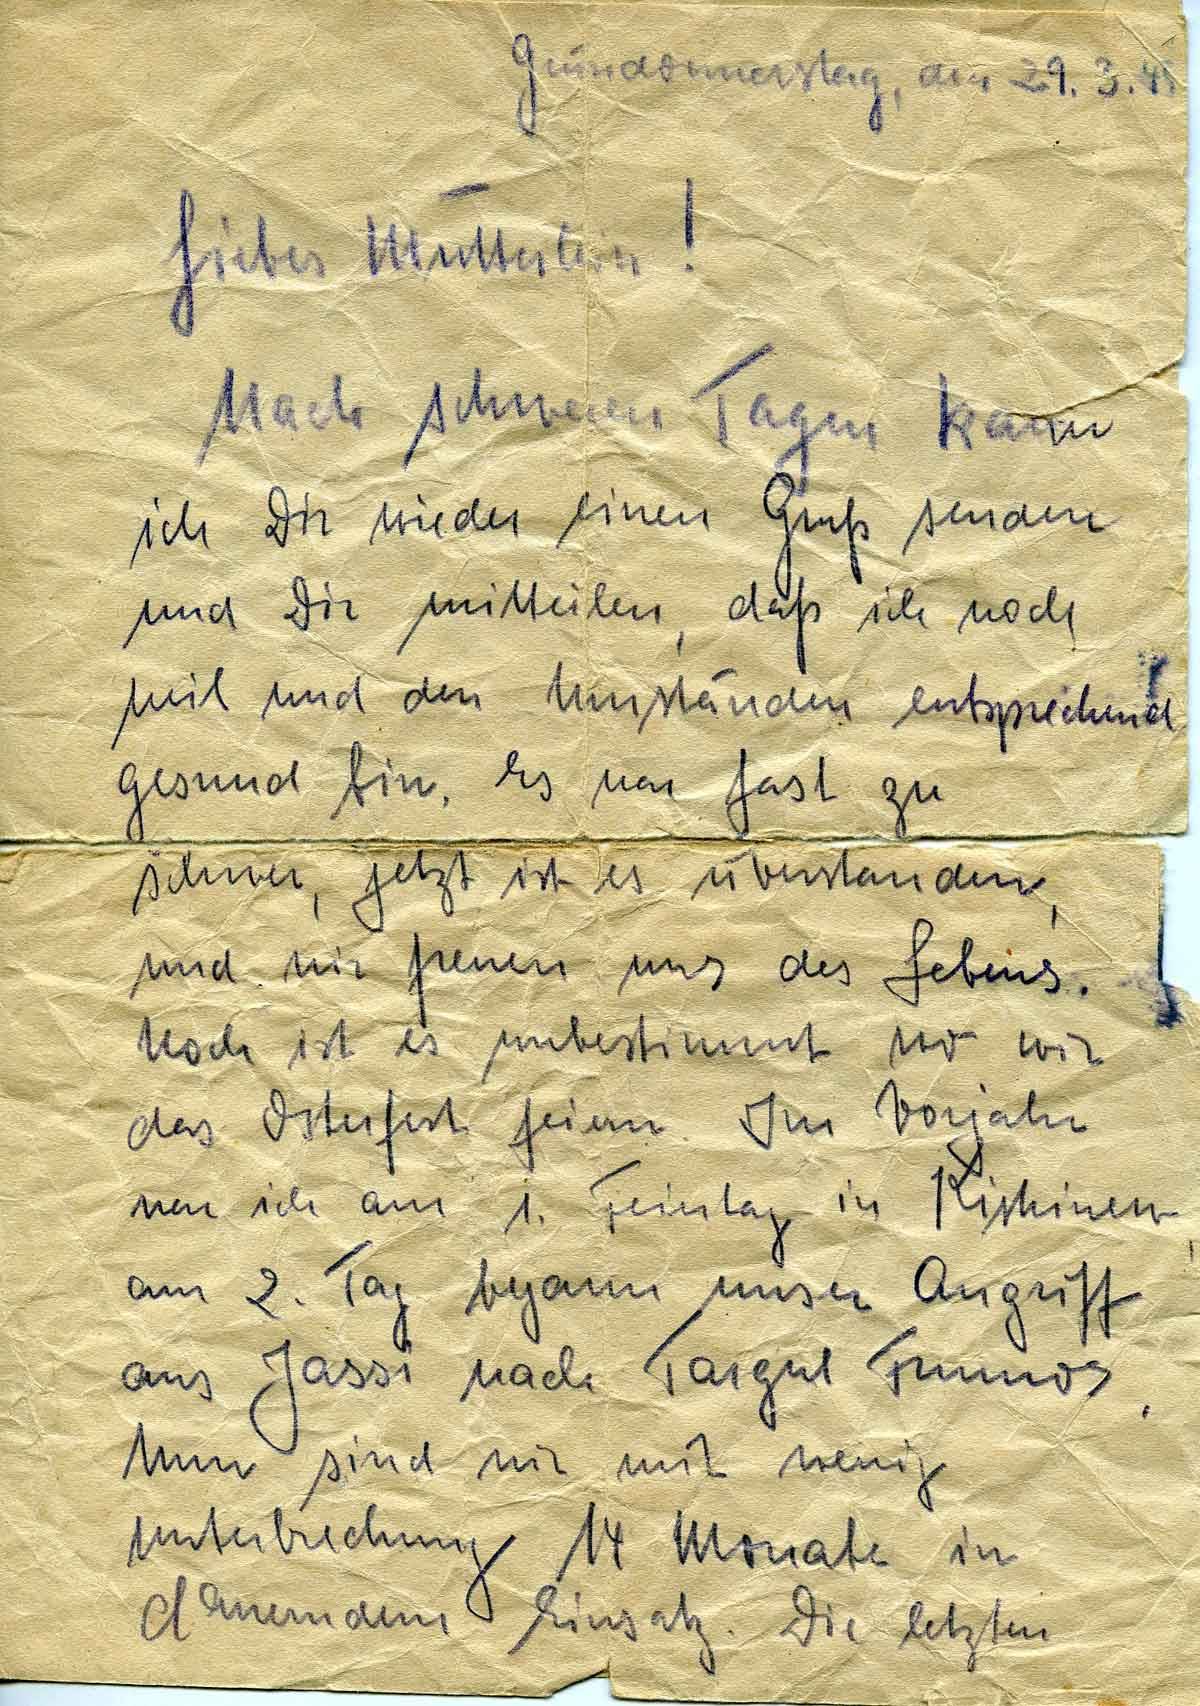 Gründonnerstag, den 29.3.45
Liebes Mütterlein!
Nach schweren Tagen kann
ich Dir wieder einen Gruß senden
und Dir mitteilen, daß ich noch
heil und den Umständen entsprechend
gesund bin. Es war fast zu
schwer, jetzt ist es überstanden,
und wir freuen uns des Lebens.
Noch ist es unbestimmt wo wir
das Osterfest feiern. Im Vorjahr
war ich am 1. Feiertag in Kischinew,
am 2. Tag begann unser Angriff
aus Jassi nach Targul Frumos,
Nun sind wir mit wenig
Unterbrechung 14 Monate in
dauerndem Einsatz. Die letzten